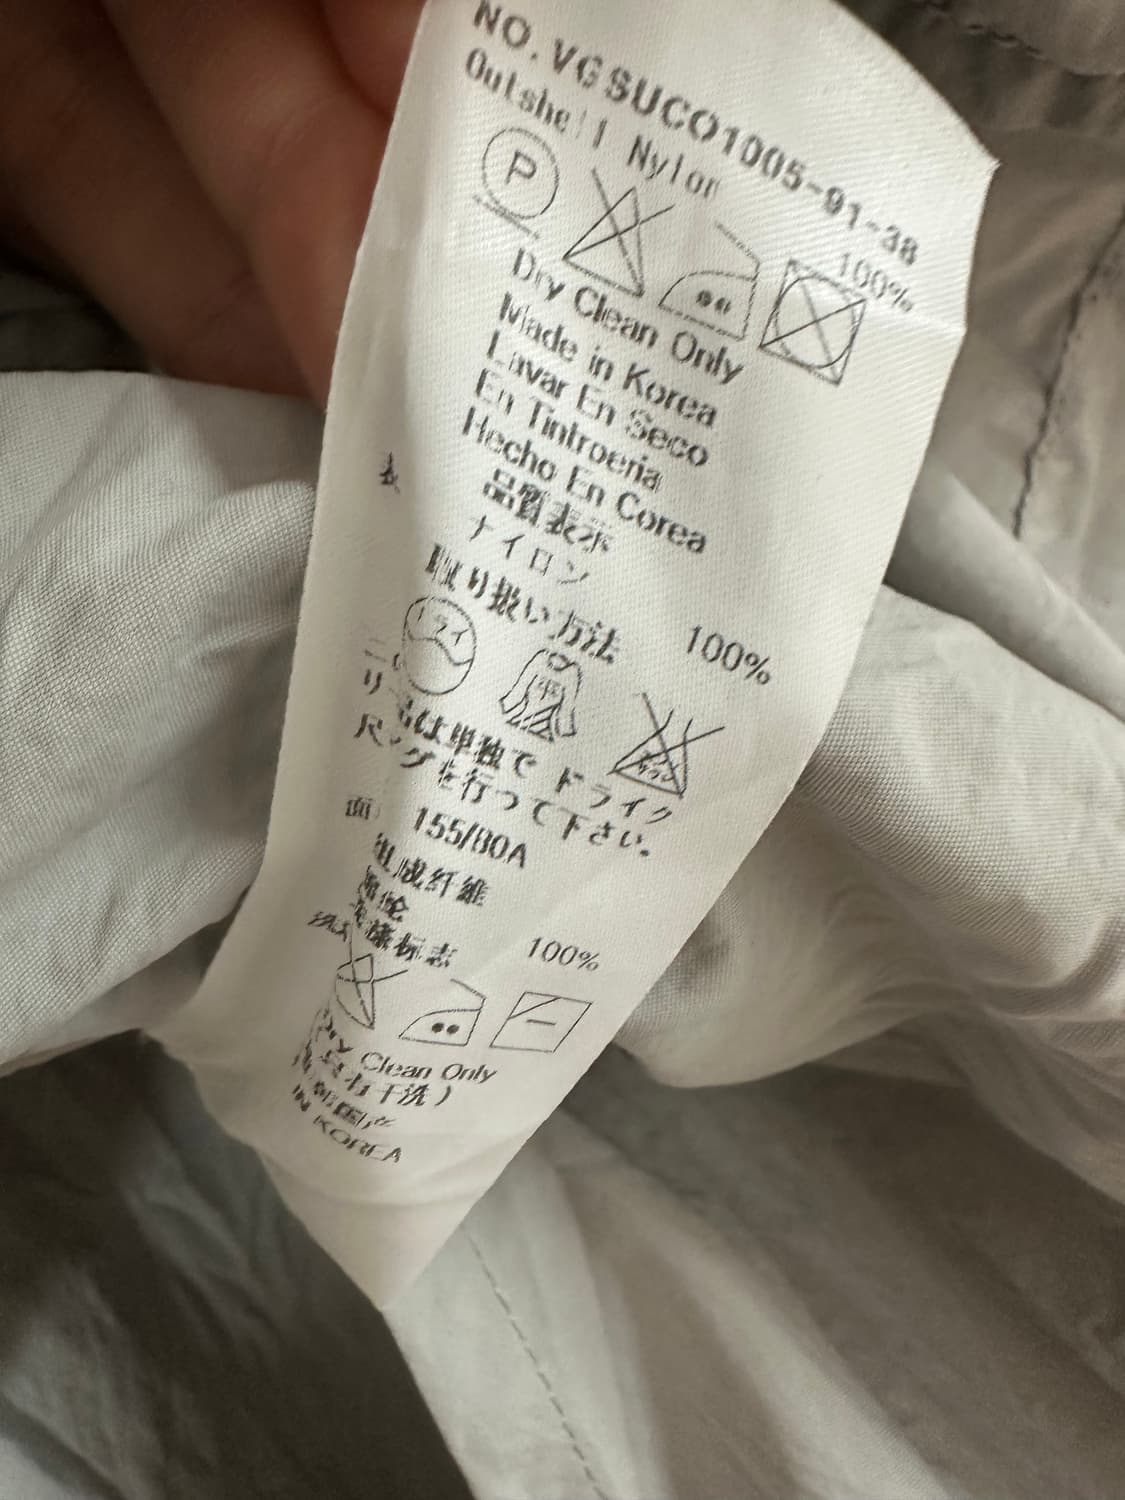 NO.VGSUCO1005-91-38
Outshell Nylon 100%
P
Dry Clean Only
Made in Korea
Lavar En Seco
En Tintroeria
Hecho En Corea
品質表示
ナイロン 100%
取り扱い方法
ドライ
品は単独で ドライク
ングを行って下さい。
155/80A
组成纤維
100%
标志
Dry Clean Only
只有干洗)
IN KOREA